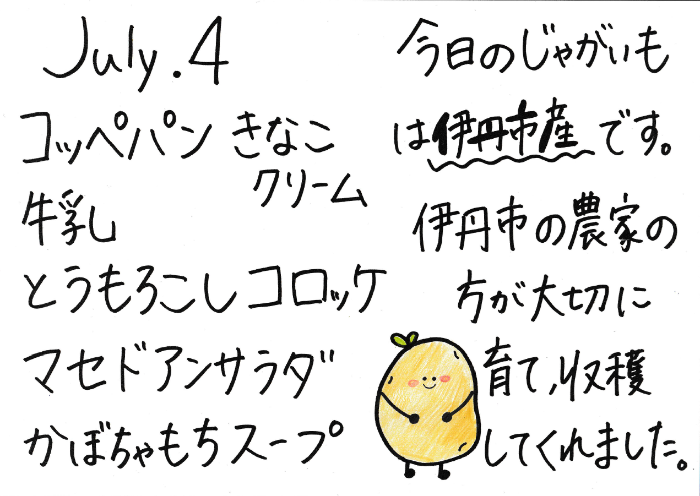 July.4
コッペパン きなこ
クリーム
牛乳
とうもろこしコロッケ
マセドアンサラダ
かぼちゃもちスープ
今日のじゃがいも
は伊丹市産です。
伊丹市の農家の
方が大切に
育て、収穫
してくれました。